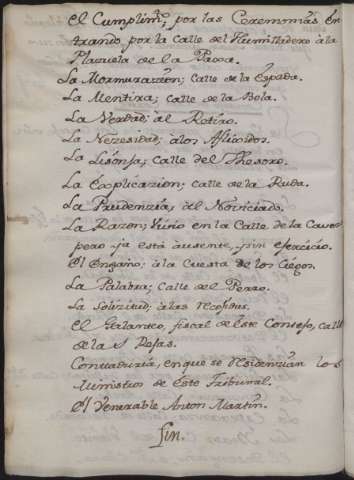 el Cumplimto, por las Ceremonias en
trando por la calle del Humilladero à la
Plazuela de la Paxa.
La Mormurazion; calle de la Espada.
La Mentira; calle de la Bola.
La Verdad; al Retiro.
La Nezesidad; à los Afligidos.
La Lisonja; calle del Thesoro.
La Explicazion; calle de la Ruda.
La Prudenzia; al Noviciado.
La Razon; vivio en la Calle de la Cavesa
pero ya està ausente, y sin exercicio.
El Engaño; à la Cuesta de los Ciegos.
La Palabra; Calle del Perro.
La Solizitud; à las
El Galanteo, fiscal de este Consejo, calle
de la Rosas.
Contaduria, en que se residenzian los
Ministros de este Tribunal.
El Venerable Anton Martin.
fin.